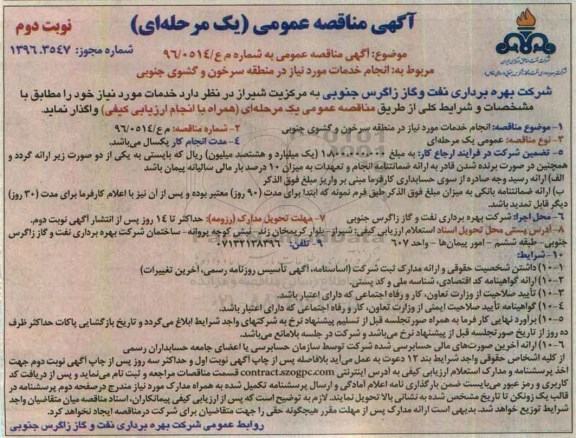 آگهی مناقصه عمومی (یک مرحله‌ای)
نوبت دوم
موضوع: آگهی مناقصه عمومی به شماره م ع/۹۶/۰۵۱۴
شماره مجوز: ۱۳۹۶.۳۵۴۷
مربوط به: انجام خدمات مورد نیاز در منطقه سرخون و گشوی جنوبی
شرکت بهره برداری نفت و گاز زاگرس جنوبی به مرکزیت شیراز در نظر دارد خدمات مورد نیاز خود را مطابق با
مشخصات و شرایط کلی از طریق مناقصه عمومی یک مرحله‌ای (همراه با انجام ارزیابی کیفی) واگذار نماید.
۱- موضوع مناقصه: انجام خدمات مورد نیاز در منطقه سرخون و گشوی جنوبی
۲- شماره مناقصه: م ع/۹۶/۰۵۱۴
۳- نوع مناقصه: عمومی یک مرحله‌ای
۴- مدت انجام کار یکسال می‌باشد.
۵- تضمین شرکت در فرآیند ارجاع کار: به مبلغ ۱.۸۰۰.۰۰۰.۰۰۰ (یک میلیارد و هشتصد میلیون) ریال که بایستی به یکی از دو صورت زیر ارائه گردد و
همچنین در صورت برنده شدن قادر به ارائه ضمانتنامه انجام و تعهدات به میزان ۱۰ درصد بار مالی سالیانه پیمان باشد
الف) ارائه رسید وجه صادره از سوی حسابداری کارفرما مبنی بر واریز مبلغ فوق الذکر
ب) ارائه ضمانتنامه بانکی به میزان مبلغ فوق الذکر طبق فرم نمونه که ابتدا برای مدت (۹۰ روز) معتبر بوده و پس از آن نیز با اعلام کارفرما برای مدت (۳۰ روز)
دیگر قابل تمدید باشد.
۶- محل اجرا: شرکت بهره برداری نفت و گاز زاگرس جنوبی
۷- مهلت تحویل مدارک (رزومه): حداکثر تا ۱۴ روز پس از انتشار آگهی نوبت دوم.
۸- آدرس پستی محل تحویل اسناد استعلام ارزیابی کیفی: شیراز- بلوار کریمخان زند- نبش کوچه پروانه- ساختمان شرکت بهره برداری نفت و گاز زاگرس
جنوبی- طبقه ششم - امور پیمان‌ها - واحد ۶۰۷
۹- تلفن: ۰۷۱۳۲۱۳۸۳۹۶
۱۰- شرایط:
۱-۱۰) داشتن شخصیت حقوقی و ارائه مدارک ثبت شرکت (اساسنامه، آگهی تأسیس روزنامه رسمی، آخرین تغییرات)
۲-۱۰) ارائه گواهینامه کد اقتصادی، شناسه ملی و کد پستی.
۳-۱۰) تأیید صلاحیت از وزارت تعاون، کار و رفاه اجتماعی که دارای اعتبار باشد.
۴-۱۰) گواهینامه تأیید صلاحیت ایمنی از وزارت تعاون، کار و رفاه اجتماعی که دارای اعتبار باشد.
۵-۱۰) برآورد نهایی کارفرما به همراه صورتجلسه قبل از تسلیم پیشنهاد نرخ به شرکتهای واجد شرایط ابلاغ می‌گردد و تاریخ بازگشایی پاکات حداکثر ظرف
ده روز از تاریخ صورتجلسه قبل از پیشنهاد نرخ می‌باشد و شرکت در جلسه بلامانع می‌باشد.
۶-۱۰) ارائه آخرین صورت‌های مالی حسابرسی شده شرکت توسط سازمان حسابرسی یا اعضای جامعه حسابداران رسمی
از کلیه اشخاص حقوقی واجد شرایط بند ۱۲ دعوت به عمل می‌آید بلافاصله پس از چاپ آگهی نوبت اول و حداکثر سه روز پس از چاپ آگهی نوبت دوم جهت
اخذ پرسشنامه و مدارک استعلام ارزیابی کیفی به آدرس اینترنتی contract.szogpc.com قسمت مناقصات مراجعه و ثبت نام می‌نماید و پس از دریافت کد
کاربری و رمز عبور می‌بایست ضمن بارگذاری نامه اعلام آمادگی و ارسال پرسشنامه تکمیل شده به همراه مدارک مورد نیاز مندرج در صفحه دوم پرسشنامه در
قالب یک زونکن تا تاریخ مشخص شده به نشانی بالا تحویل نمایند. لازم به توضیح است که پس از ارزیابی کیفی پیمانکاران، اسناد مناقصه میان متقاضیان واجد
شرایط توزیع خواهد شد. بدیهی است ارائه مدارک پس از مهلت مقرر هیچگونه حقی را جهت متقاضیان برای شرکت در مناقصه ایجاد نخواهد کرد.
روابط عمومی شرکت بهره برداری نفت و گاز زاگرس جنوبی